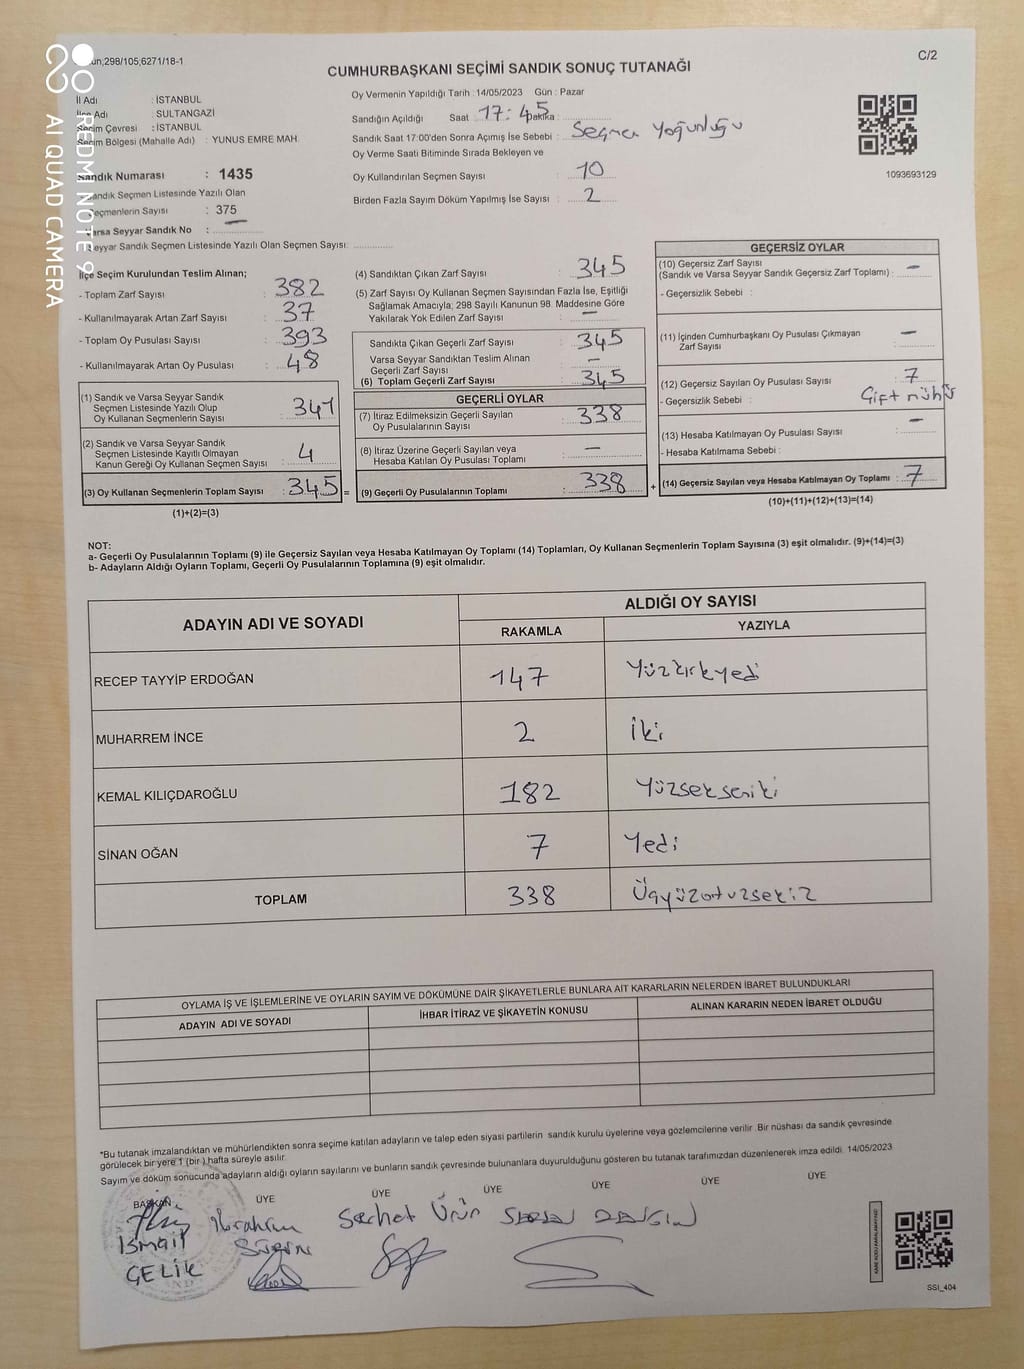 un,298/105;6271/18-1
C/2
CUMHURBAŞKANI SEÇİMİ SANDIK SONUÇ TUTANAĞI
İl Adı : İSTANBUL
İlçe Adı : SULTANGAZİ
Seçim Çevresi : İSTANBUL
Seçim Bölgesi (Mahalle Adı) : YUNUS EMRE MAH.
Sandık Numarası : 1435
Sandık Seçmen Listesinde Yazılı Olan
Seçmenlerin Sayısı : 375
Varsa Seyyar Sandık No : —
Seyyar Sandık Seçmen Listesinde Yazılı Olan Seçmen Sayısı:
Oy Vermenin Yapıldığı Tarih : 14/05/2023 Gün : Pazar
Sandığın Açıldığı Saat 17:45 Dakika
Sandık Saat 17:00'den Sonra Açımış İse Sebebi : Seçmen Yoğunluğu
Oy Verme Saati Bitiminde Sırada Bekleyen ve
Oy Kullandırılan Seçmen Sayısı : 10
Birden Fazla Sayım Döküm Yapılmış İse Sayısı : 2
1093693129
İlçe Seçim Kurulundan Teslim Alınan;
- Toplam Zarf Sayısı : 382
- Kullanılmayarak Artan Zarf Sayısı : 37
- Toplam Oy Pusulası Sayısı : 393
- Kullanılmayarak Artan Oy Pusulası : 48
(1) Sandık ve Varsa Seyyar Sandık
Seçmen Listesinde Yazılı Olup
Oy Kullanan Seçmenlerin Sayısı : 341
(2) Sandık ve Varsa Seyyar Sandık
Seçmen Listesinde Kayıtlı Olmayan
Kanun Gereği Oy Kullanan Seçmen Sayısı : 4
(3) Oy Kullanan Seçmenlerin Toplam Sayısı : 345 =
(1)+(2)=(3)
(4) Sandıktan Çıkan Zarf Sayısı : 345
(5) Zarf Sayısı Oy Kullanan Seçmen Sayısından Fazla İse, Eşitliği
Sağlamak Amacıyla; 298 Sayılı Kanunun 98. Maddesine Göre
Yakılarak Yok Edilen Zarf Sayısı : —
Sandıkta Çıkan Geçerli Zarf Sayısı : 345
Varsa Seyyar Sandıktan Teslim Alınan
Geçerli Zarf Sayısı : —
(6) Toplam Geçerli Zarf Sayısı : 345
GEÇERLİ OYLAR
(7) İtiraz Edilmeksizin Geçerli Sayılan
Oy Pusulalarının Sayısı : 338
(8) İtiraz Üzerine Geçerli Sayılan veya
Hesaba Katılan Oy Pusulası Toplamı : —
(9) Geçerli Oy Pusulalarının Toplamı : 338 +
GEÇERSİZ OYLAR
(10) Geçersiz Zarf Sayısı
(Sandık ve Varsa Seyyar Sandık Geçersiz Zarf Toplamı) : —
- Geçersizlik Sebebi :
(11) İçinden Cumhurbaşkanı Oy Pusulası Çıkmayan
Zarf Sayısı : —
(12) Geçersiz Sayılan Oy Pusulası Sayısı : 7
- Geçersizlik Sebebi : Çift mühür
(13) Hesaba Katılmayan Oy Pusulası Sayısı : —
- Hesaba Katılmama Sebebi :
(14) Geçersiz Sayılan veya Hesaba Katılmayan Oy Toplamı : 7
(10)+(11)+(12)+(13)=(14)
NOT:
a- Geçerli Oy Pusulalarının Toplamı (9) ile Geçersiz Sayılan veya Hesaba Katılmayan Oy Toplamı (14) Toplamları, Oy Kullanan Seçmenlerin Toplam Sayısına (3) eşit olmalıdır. (9)+(14)=(3)
b- Adayların Aldığı Oyların Toplamı, Geçerli Oy Pusulalarının Toplamına (9) eşit olmalıdır.
ADAYIN ADI VE SOYADI ALDIĞI OY SAYISI
RAKAMLA YAZIYLA
RECEP TAYYİP ERDOĞAN 147 Yüzkırkyedi
MUHARREM İNCE 2 İki
KEMAL KILIÇDAROĞLU 182 Yüzsekseniki
SİNAN OĞAN 7 Yedi
TOPLAM 338 Üçyüzotuzsekiz
OYLAMA İŞ VE İŞLEMLERİNE VE OYLARIN SAYIM VE DÖKÜMÜNE DAİR ŞİKAYETLERLE BUNLARA AİT KARARLARIN NELERDEN İBARET BULUNDUKLARI
ADAYIN ADI VE SOYADI İHBAR İTİRAZ VE ŞİKAYETİN KONUSU ALINAN KARARIN NEDEN İBARET OLDUĞU
*Bu tutanak imzalandıktan ve mühürlendikten sonra seçime katılan adayların ve talep eden siyasi partilerin sandık kurulu üyelerine veya gözlemcilerine verilir. Bir nüshası da sandık çevresinde
görülecek bir yere 1 (bir ) hafta süreyle asılır.
Sayım ve döküm sonucunda adayların aldığı oyların sayılarını ve bunların sandık çevresinde bulunanlara duyurulduğunu gösteren bu tutanak tarafımızdan düzenlenerek imza edildi. 14/05/2023
BAŞKAN ÜYE ÜYE ÜYE ÜYE ÜYE ÜYE
İsmail ÇELİK
İbrahim
Serhat Ürün
SSI_404
REDMI NOTE 9
AI QUAD CAMERA